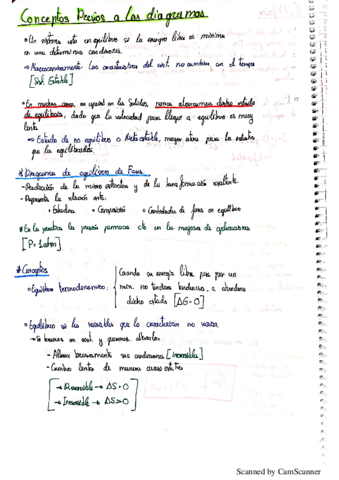 Conceptos Previos a los diagramas
• Un sistema esta en equilibrio si la energia libre es minima
en una determinadas condiciones.
→ Macroscopicamente las caracteristicas del sist. no cambian en el tiempo
[Sist. Estable]
• En muchos casos, en especial en los Solidos, nunca alcanzamos dicho estado
de equilibrio, dado que la velocidad para llegar a equilibrio es muy
lenta
⇒ Estado de no equilibrio o Metaestable, mayor interes para la
que la equilibrados.
* Diagramas de equilibrio de Fases
- Prediccion de la microestructura y de la transformacion
- Representa la relacion entre:
• Estructura • Composicion • Cantidades de fases en equilibrio
* En la practica la presion permanece cte en la mayoria de aplicaciones
[P = 1 atm]
* Conceptos
• Equilibrio termodinamico: Cuando su energia libre pasa por un
min. no tendran tendencia a abandonar
dicho estado [ΔG = 0]
• Equilibrio si las variables que lo caracterizan no varian.
- Si tenemos un sist. y queremos alterarlo
- Alterar bruscamente sus condiciones [Irreversible]
- Cambio lento de manera cuasiestatica
→ Reversible → ΔS = 0
→ Irreversible → ΔS > 0
Scanned by CamScanner